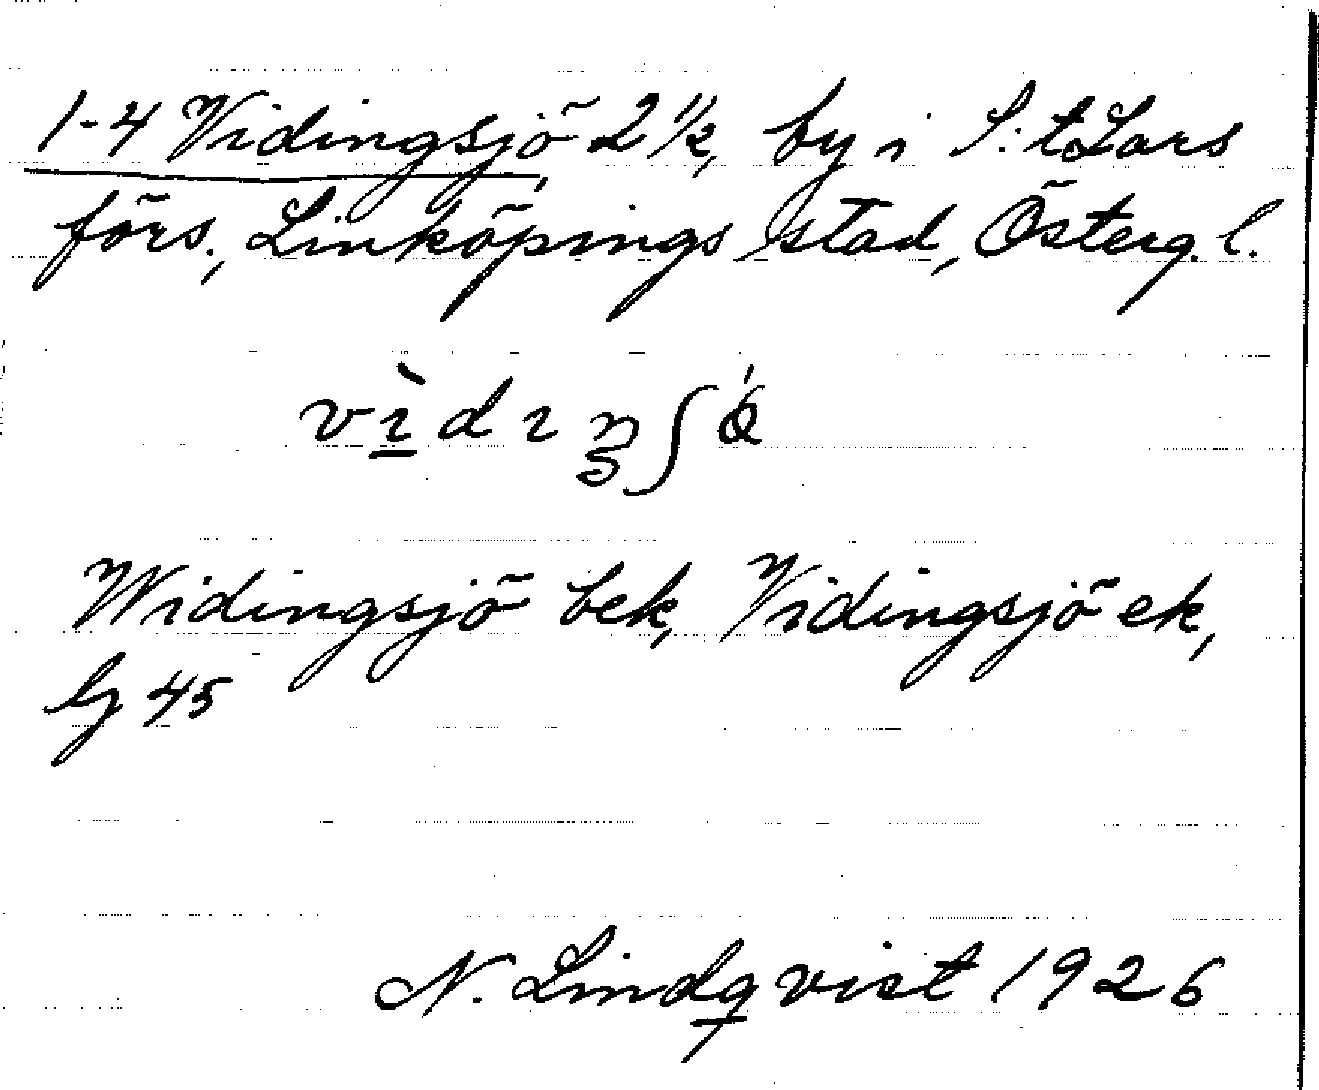 1-4 Vidingsjö 2 1/2, by i S:t Lars
förs., Linköpings stad, Österg. l.
vìdıŋʃǿ
Widingsjö bek, Vidingsjö ek,
Lg 45
N. Lindqvist 1926